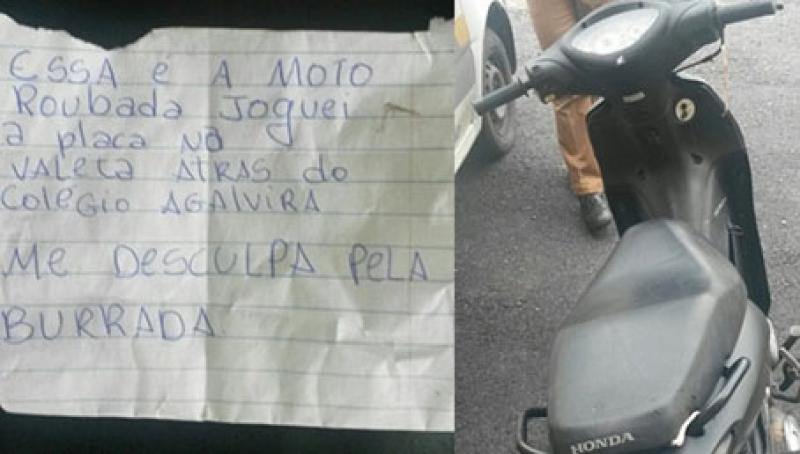 ESSA é A MOTO
Roubada Joguei
a placa na
VALeta ATRAS do
Colégio AGALVIRA
Me DESCULPA PeLA
BURRADA
HONDA